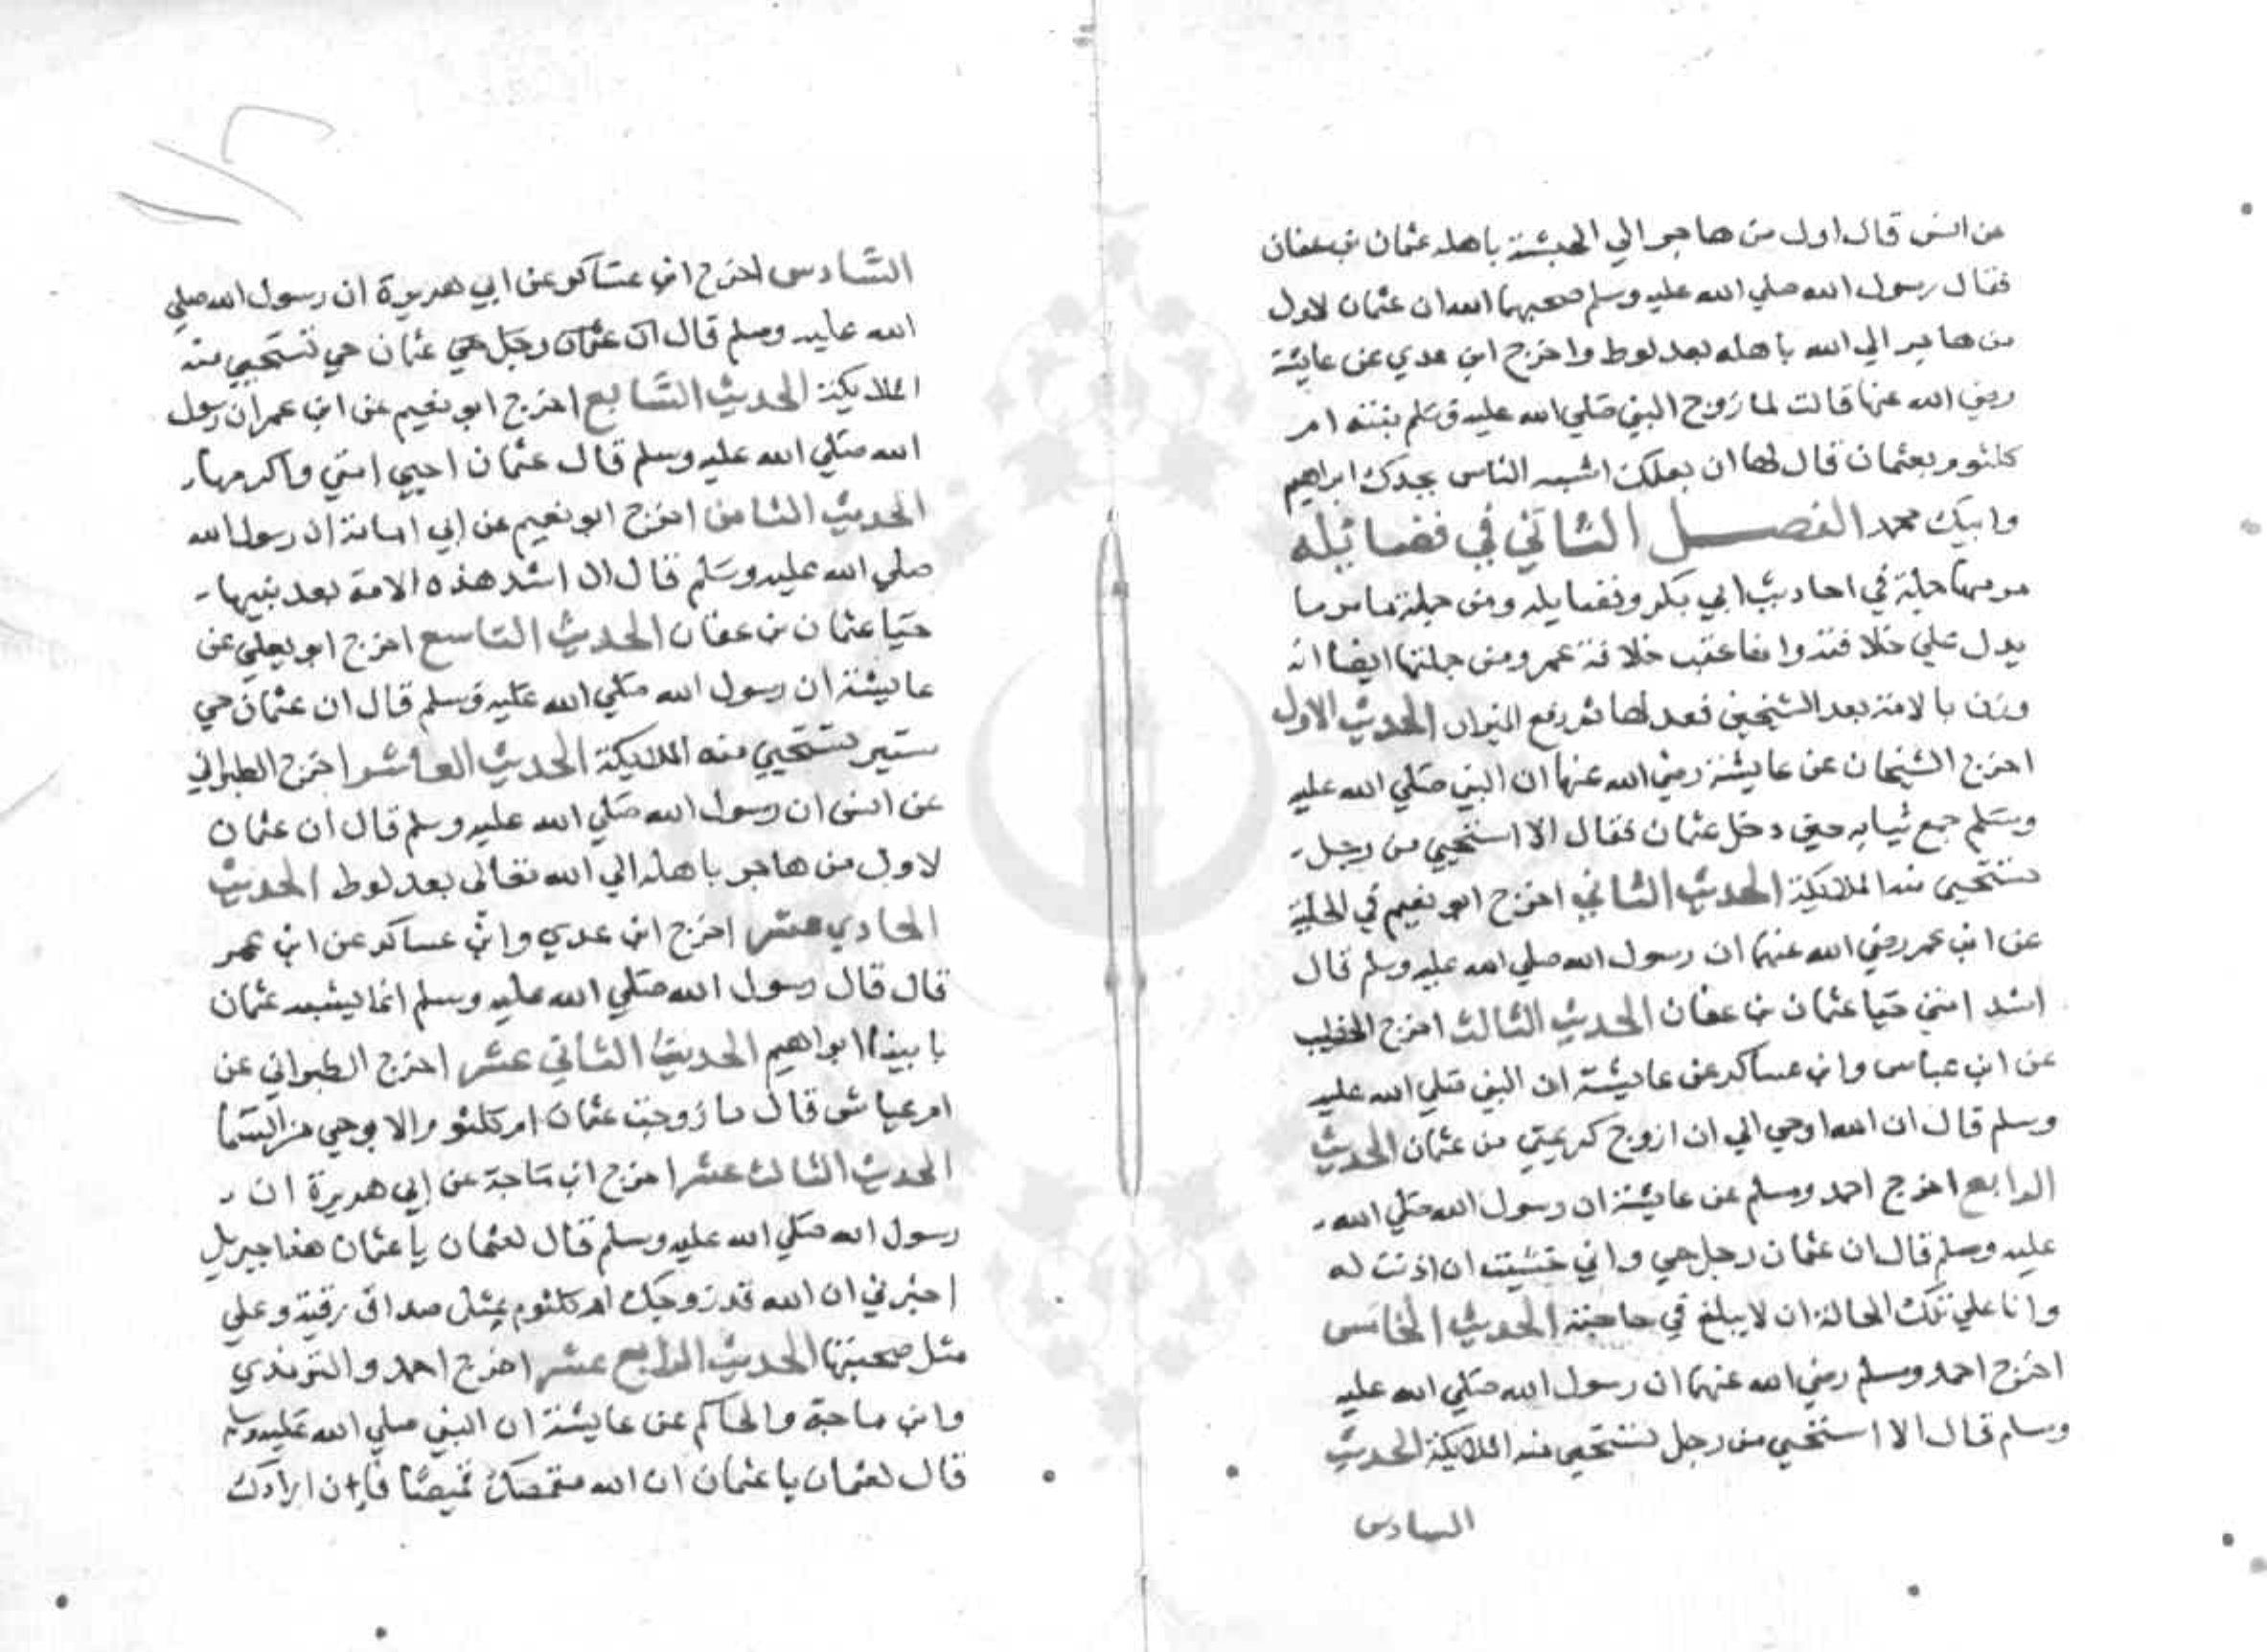 عن انس قال اول من هاجر الي الحبشة باهله عثمان بن عفان
فقال رسول الله صلي الله عليه وسلم صحبهما الله ان عثمان لاول
من هاجر الي الله باهله بعد لوط واخرج ابن عدي عن عايشة
رضي الله عنها قالت لما زوج النبي صلي الله عليه وسلم بنته ام
كلثوم بعثمان قال لها ان بعلك اشبه الناس بجدك ابراهيم
وابيك محمد الفصل الثاني في فضايله
مر منها جملة في احاديث ابي بكر وفضايله ومن جملة ما مر ما
يدل علي خلافته وانها عقب خلافة عمر ومن جملتها ايضا انه
وزن بالامة بعد الشيخين فعدلها ثم رفع الميزان الحديث الاول
اخرج الشيخان عن عايشة رضي الله عنها ان النبي صلي الله عليه
وسلم جمع ثيابه حين دخل عثمان فقال الا استحيي من رجل
تستحيي منه الملايكة الحديث الثاني اخرج ابو نعيم في الحلية
عن ابن عمر رضي الله عنهما ان رسول الله صلي الله عليه وسلم قال
اشد امتي حيا عثمان بن عفان الحديث الثالث اخرج الخطيب
عن ابن عباس وابن عساكر عن عايشة ان النبي صلي الله عليه
وسلم قال ان الله اوحي الي ان ازوج كريمتي من عثمان الحديث
الرابع اخرج احمد ومسلم عن عايشة ان رسول الله صلي الله
عليه وسلم قال ان عثمان رجل حيي واني خشيت ان اذنت له
وانا علي تلك الحالة ان لا يبلغ في حاجته الحديث الخامس
اخرج احمد ومسلم رضي الله عنهما ان رسول الله صلي الله عليه
وسلم قال الا استحيي من رجل تستحيي منه الملايكة الحديث
السادس
السادس اخرج ابن عساكر عن ابي هريرة ان رسول الله صلي
الله عليه وسلم قال ان عثمان رجل حيي عثمان حيي تستحيي منه
الملايكة الحديث السابع اخرج ابو نعيم عن ابن عمر ان رسول
الله صلي الله عليه وسلم قال عثمان احيي امتي واكرمها
الحديث الثامن اخرج ابو نعيم عن ابي امامة ان رسول الله
صلي الله عليه وسلم قال ان اشد هذه الامة بعد نبيها
حيا عثمان بن عفان الحديث التاسع اخرج ابو يعلي عن
عايشة ان رسول الله صلي الله عليه وسلم قال ان عثمان حيي
ستير تستحيي منه الملايكة الحديث العاشر اخرج الطبراني
عن انس ان رسول الله صلي الله عليه وسلم قال ان عثمان
لاول من هاجر باهله الي الله تعالي بعد لوط الحديث
الحادي عشر اخرج ابن عدي وابن عساكر عن ابن عمر
قال قال رسول الله صلي الله عليه وسلم انما يشبه عثمان
بابينا ابراهيم الحديث الثاني عشر اخرج الطبراني عن
ام عياش قال ما زوجت عثمان ام كلثوم الا بوحي من السما
الحديث الثالث عشر اخرج ابن ماجة عن ابي هريرة ان
رسول الله صلي الله عليه وسلم قال لعثمان يا عثمان هذا جبريل
اخبرني ان الله قد زوجك ام كلثوم بمثل صداق رقية وعلي
مثل صحبتها الحديث الرابع عشر اخرج احمد والترمذي
وابن ماجة والحاكم عن عايشة ان النبي صلي الله عليه وسلم
قال لعثمان يا عثمان ان الله مقمصك قميصا فان ارادك